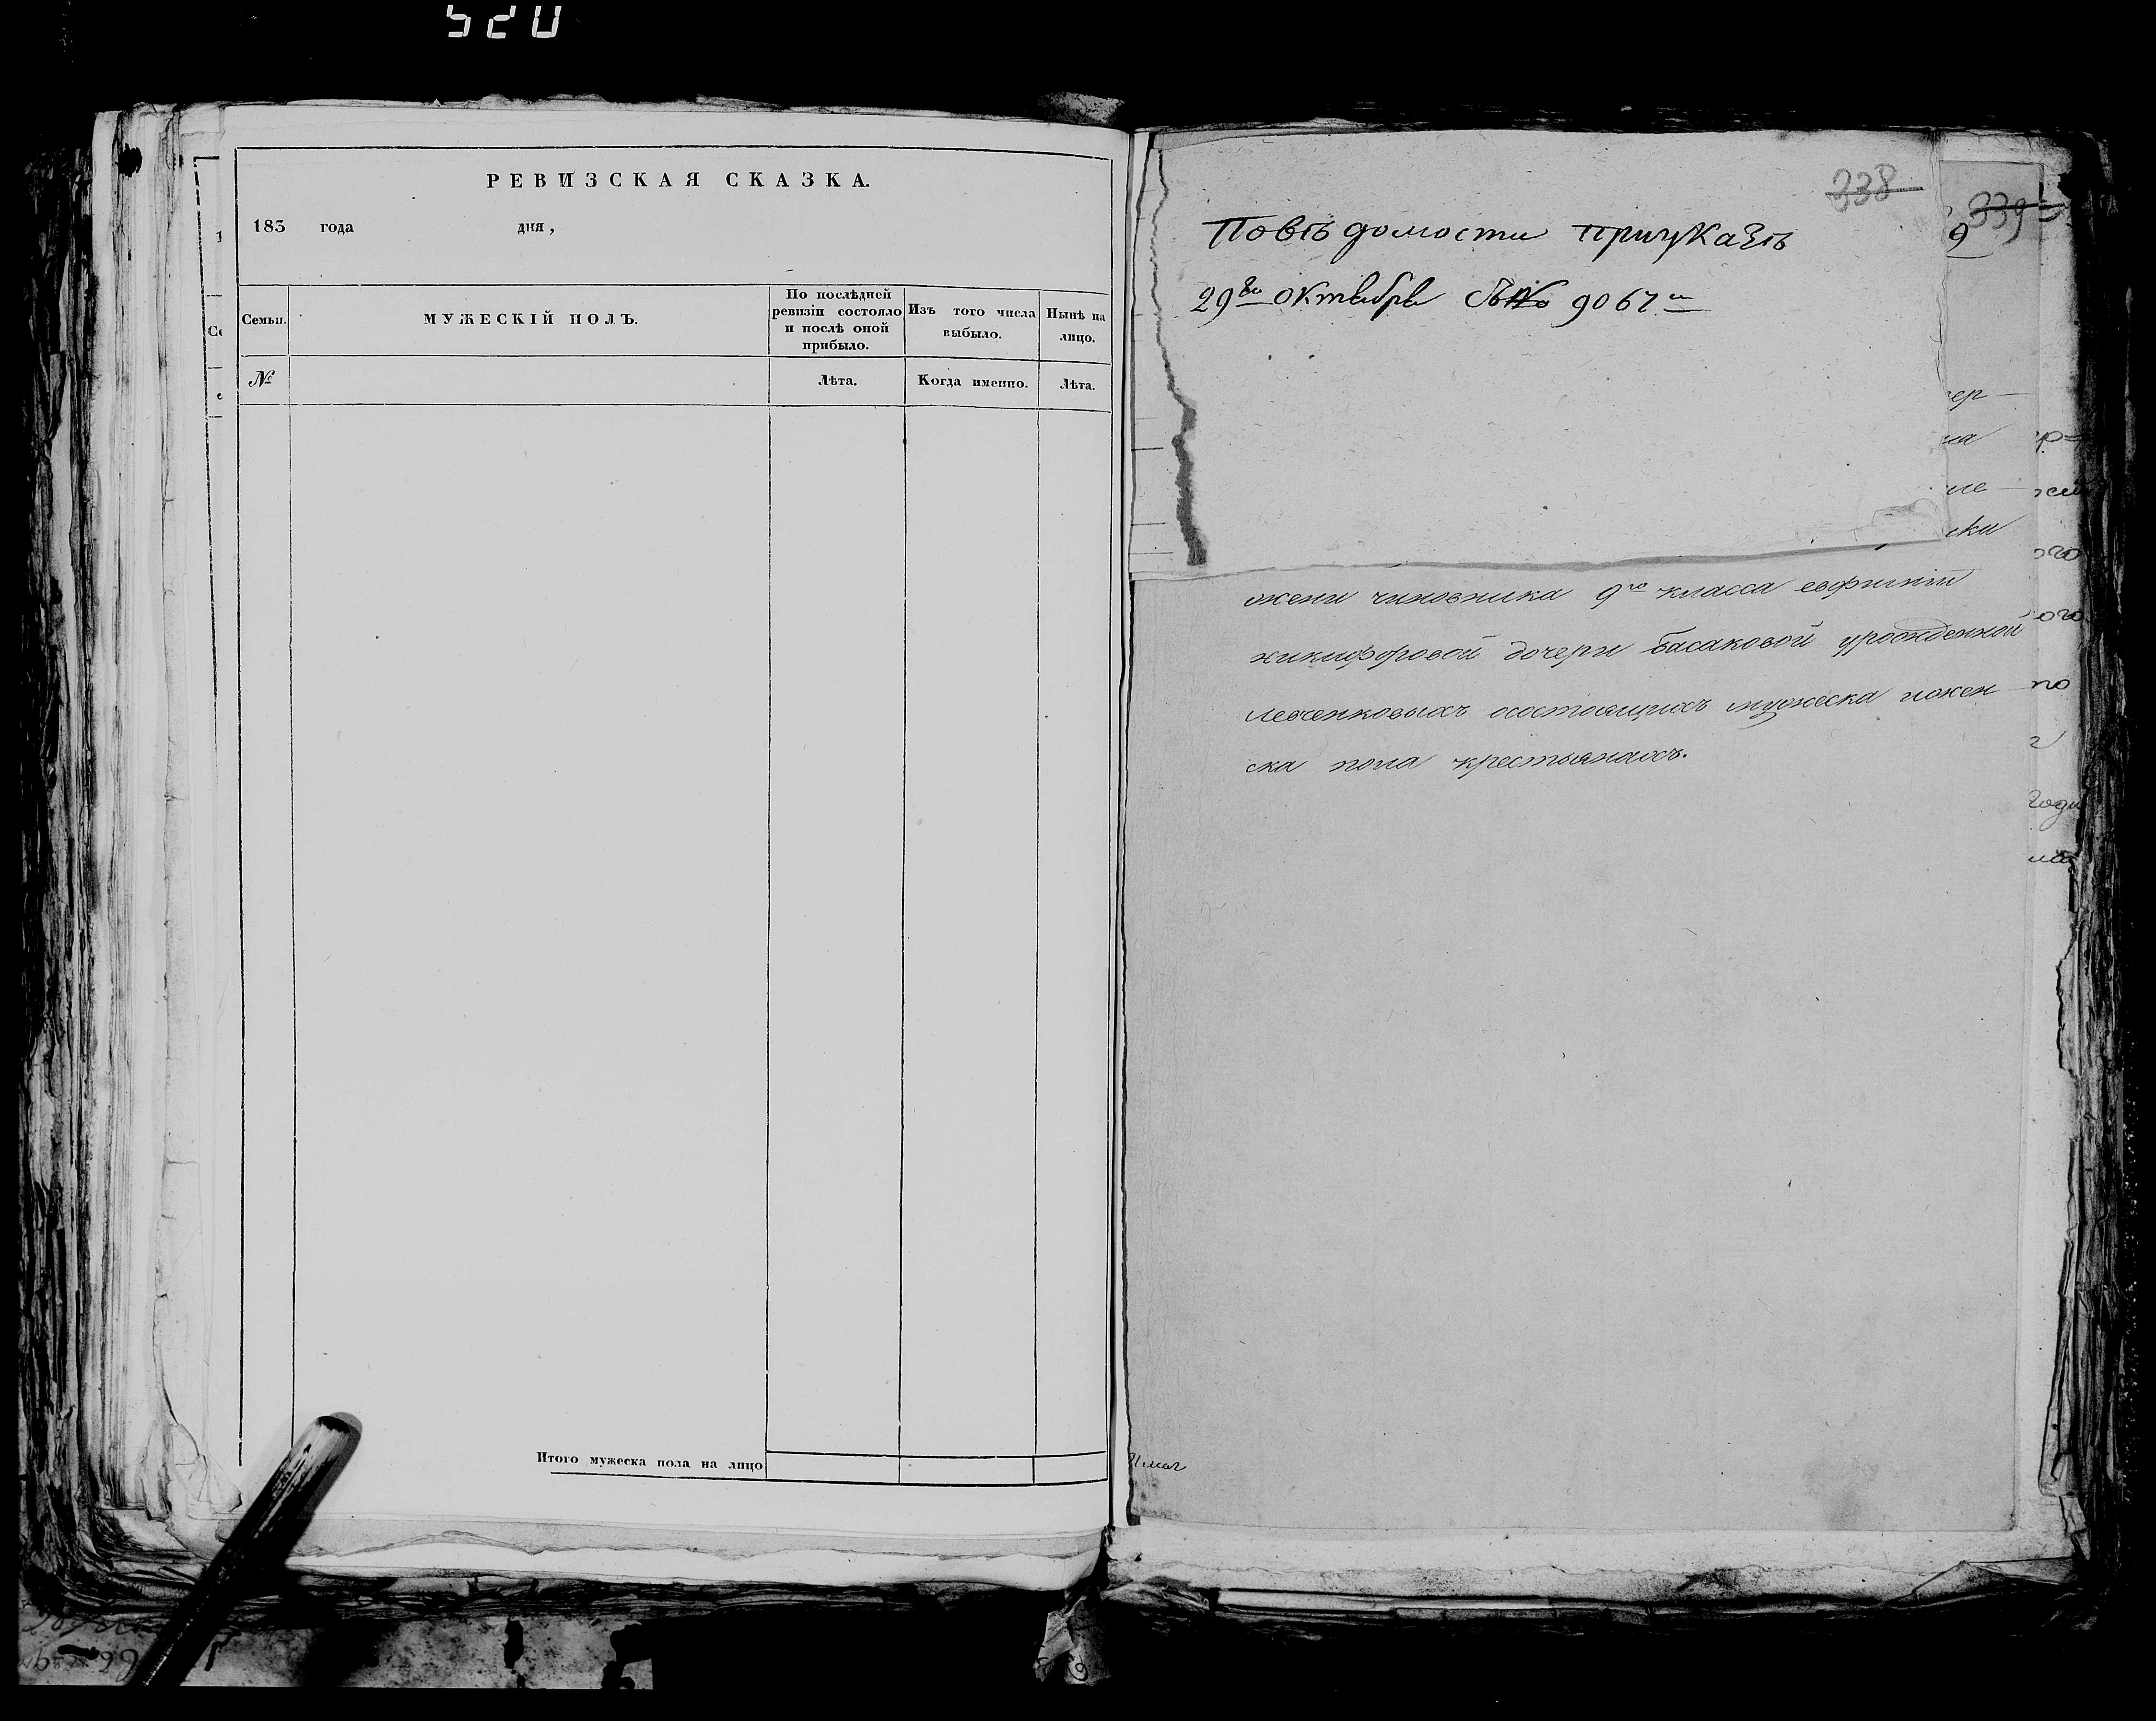 520
РЕВИЗСКАЯ СКАЗКА.
183 года дня,
Семьи.
МУЖЕСКІЙ ПОЛЪ.
По послѣдней ревизіи состояло и послѣ оной прибыло.
Изъ того числа выбыло.
Нынѣ на лицо.
№
Лѣта.
Когда именно.
Лѣта.
Итого мужеска пола на лицо
338
339
Повѣдомости приуказѣ
29го октября № 9067
жени чиновника 9го класса евфиміи
никифоровой дочери Басаковой урожденной
Левченковыхъ осостоящихъ мужеска ижен
ска пола крестьянахъ.